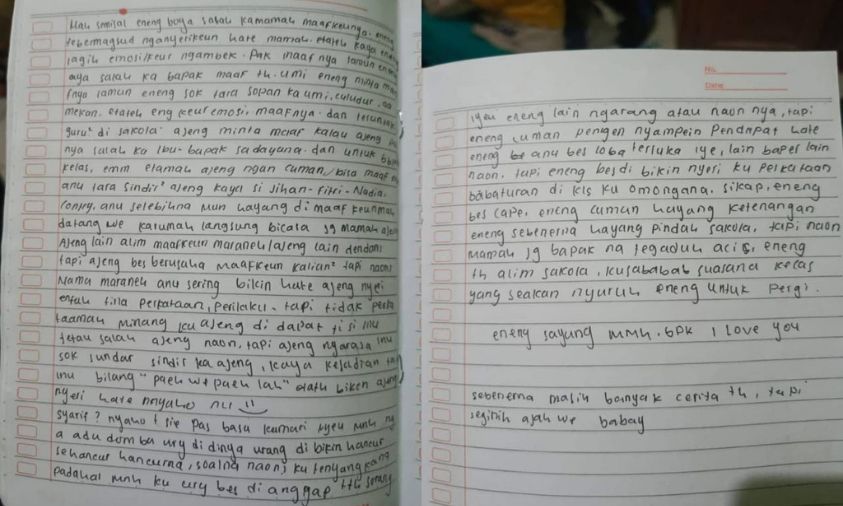 Mah smisal eneng boga salah kamamah maafkeunya. eneng
te bermagsud nganyerikeun hate mamah. etateh kaya eneng
lagih emosi/keur ngambek. Pak maaf nya lamun eneng
aya salah ka bapak maaf th. umi eneng minta maa
fnya lamun eneng sok tara sopan ka umi, cul
mekan. etateh eng keur emosi, maafnya. dan teruntuk
guru² di sakola ajeng minta maaf kalau ajeng
nya salah ka ibu-bapak sadayana. dan untuk
kelas, emm etamah ajeng ngan cuman bisa maaf
anu tara sindir² ajeng kaya si Jihan-Fitri-Nadia.
sorry, anu selebihna mun hayang di maaf keun mah
datang we karumah langsung bicara jg mamah ajeng
Ajeng lain alim maafkeun maraneh/ajeng lain dendam
tapi ajeng bes berusaha maafkeun kalian² tapi naon
Nama maraneh anu sering bikin hate ajeng nyeri
entah tina perkataan, perilaku. tapi tidak
taamah minang ku ajeng di dapat ti si inu
tetau salah ajeng naon, tapi ajeng ngarasa inu
sok sundar sindir ka ajeng, kaya kejadian
inu bilang "paeh we paeh lah" etath biken ajeng
nyeri hate nnyaho nu
syarif? nyaho t sie pas basa kumari iyeu mnh ng
a adu domba ury di dinya urang di bikin hancur
sehancur hancurna, soalna naon, ku tenyangkang
padahal mnh ku ury bes di anggap tth sorang
No.
Date
iyeu eneng lain ngarang atau naon nya, tapi
eneng cuman pengen nyampein Pendapat hate
eneng anu bes loba terluka iye, lain baper lain
naon. tapi eneng bes di bikin nyeri ku perkataan
babaturan di kls ku omongana, sikap, eneng
bes cape, eneng cuman hayang ketenangan
eneng sebenerna hayang pindah sakola, tapi naon
mamah jg bapak na tegaduh acis, eneng
th alim sakola, kusababab suasana kelas
yang seakan nyuruh eneng untuk pergi.
eneng sayang mmh. bpk I love you
sebenerna masih banyak cerita th, tapi
segitih ajah we babay